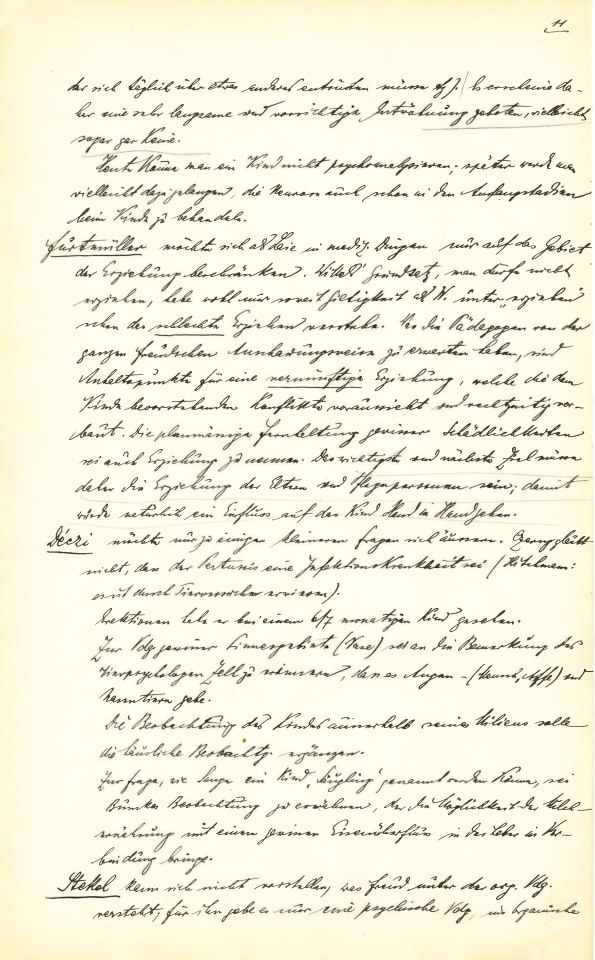 11
der sich täglich über etwas anderes entrüsten müsse etz.) Es erscheine da-
her eine sehr langsame und vorsichtige Entwöhnung geboten, vielleicht
sogar gar keine.
Heute könne man ein Kind nicht psychoanalysieren; später werde man
vielleicht dazu gelangen, die Neurose auch schon in den Anfangsstadien
beim Kinde zu behandeln.
Furtmüller möchte sich als Laie in mediz. Dingen nur auf das Gebiet
der Erziehung beschränken. Wittels' Grundsatz, man dürfe nicht
erziehen, habe wohl nur soweit Giltigkeit als W. unter „erziehen"
schon das schlechte Erziehen verstehe. Was die Pädagogen von der
ganzen Freudschen Anschauungsweise zu erwarten haben, sind
Anhaltspunkte für eine vernünftige Erziehung, welche die dem
Kinde bevorstehenden Konflikte voraussieht und rechtzeitig vor-
baut. Die planmässige Fernhaltung gewisser Schädlichkeiten
sei auch Erziehung zu nennen. Das wichtigste und nächste Ziel müsse
daher die Erziehung der Eltern und Pflegepersonen sein; damit
würde natürlich ein Einfluss auf das Kind Hand in Hand gehen.
Déczi möchte nur zu einigen kleineren Fragen sich äussern. Czerny glaubt
nicht, dass der Pertussis eine Infektionskrankheit sei (Hitschmann:
ist durch Tierversuche erwiesen).
Erektionen habe er bei einem 6/7 monatigen Kind gesehen.
Zur Vdg gewisser Sinnesgebiete (Nase) sei an die Bemerkung des
Tierpsychologen Zell zu erinnern, dass es Augen- (Mensch, Affe) und
Nasentiere gebe.
Die Beobachtung des Kindes ausserhalb seines Milieus solle
die häusliche Beobachtg. ergänzen.
Zur Frage, wie lange ein Kind „Säugling" genannt werden könne, sei
Bunges Beobachtung zu erwähnen, der die Möglichkeit der Milch-
ernährung mit einem gewissen Eisenüberfluss in der Leber in Ver-
bindung bringe.
Stekel kann sich nicht vorstellen, was Freud unter der org. Vdg.
versteht; für ihn gebe es nur eine psychische Vdg, und organische